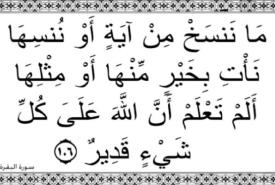 مَا نَنسَخْ مِنْ آيَةٍ أَوْ نُنسِهَا
نَأْتِ بِخَيْرٍ مِّنْهَا أَوْ مِثْلِهَا
أَلَمْ تَعْلَمْ أَنَّ اللَّهَ عَلَىَ كُلِّ
شَيْءٍ قَدِيرٌ ﴿١٠٦﴾
سورة البقرة